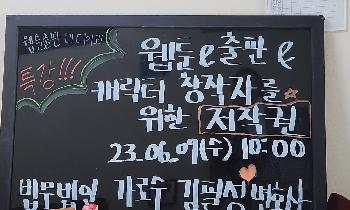 특강!!!
웹툰&출판&
캐릭터 창작자를
위한 저작권
23.06.07(수) 10:00
법무법인 가로수 김필성 변호사